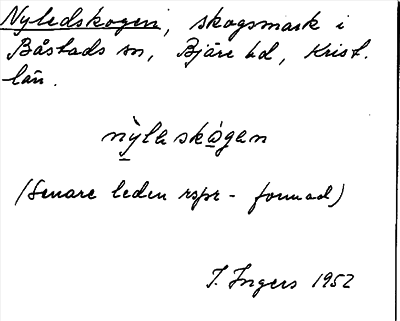 Nyledskogen, skogsmark i
Båstads sn, Bjäre hd, Krist.
län.
nỳleskògen
(Senare leden rspr - formad)
I. Ingers 1952